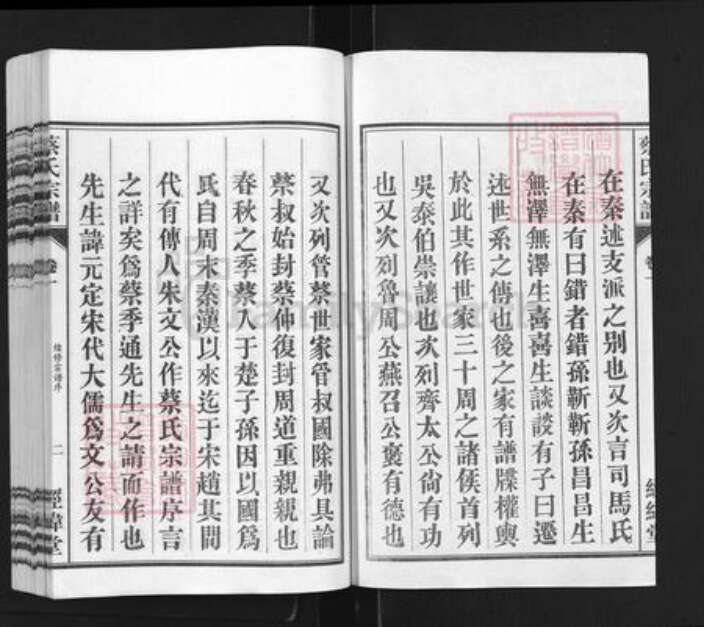 蔡氏宗譜
卷一
經緯堂
在秦述支派之别也又次言司馬氏
在秦有曰錯者錯孫靳靳孫昌昌生
無澤無澤生喜喜生談談有子曰遷
述世系之傳也後之家有譜牒權輿
於此其作世家三十周之諸侯首列
吳泰伯崇讓也次列齊太公尙有功
也又次列魯周公燕召公褒有德也
又次列管蔡世家管叔國除弗具論
蔡叔始封蔡仲復封周道重親親也
春秋之季蔡入于楚子孫因以國爲
氏自周末秦漢以來迄于宋趙其間
代有傳人朱文公作蔡氏宗譜序言
之詳矣爲蔡季通先生之請而作也
先生諱元定宋代大儒爲文公友有
蔡氏宗譜
卷一
續修宗譜序
二
經緯堂
FamilySearch